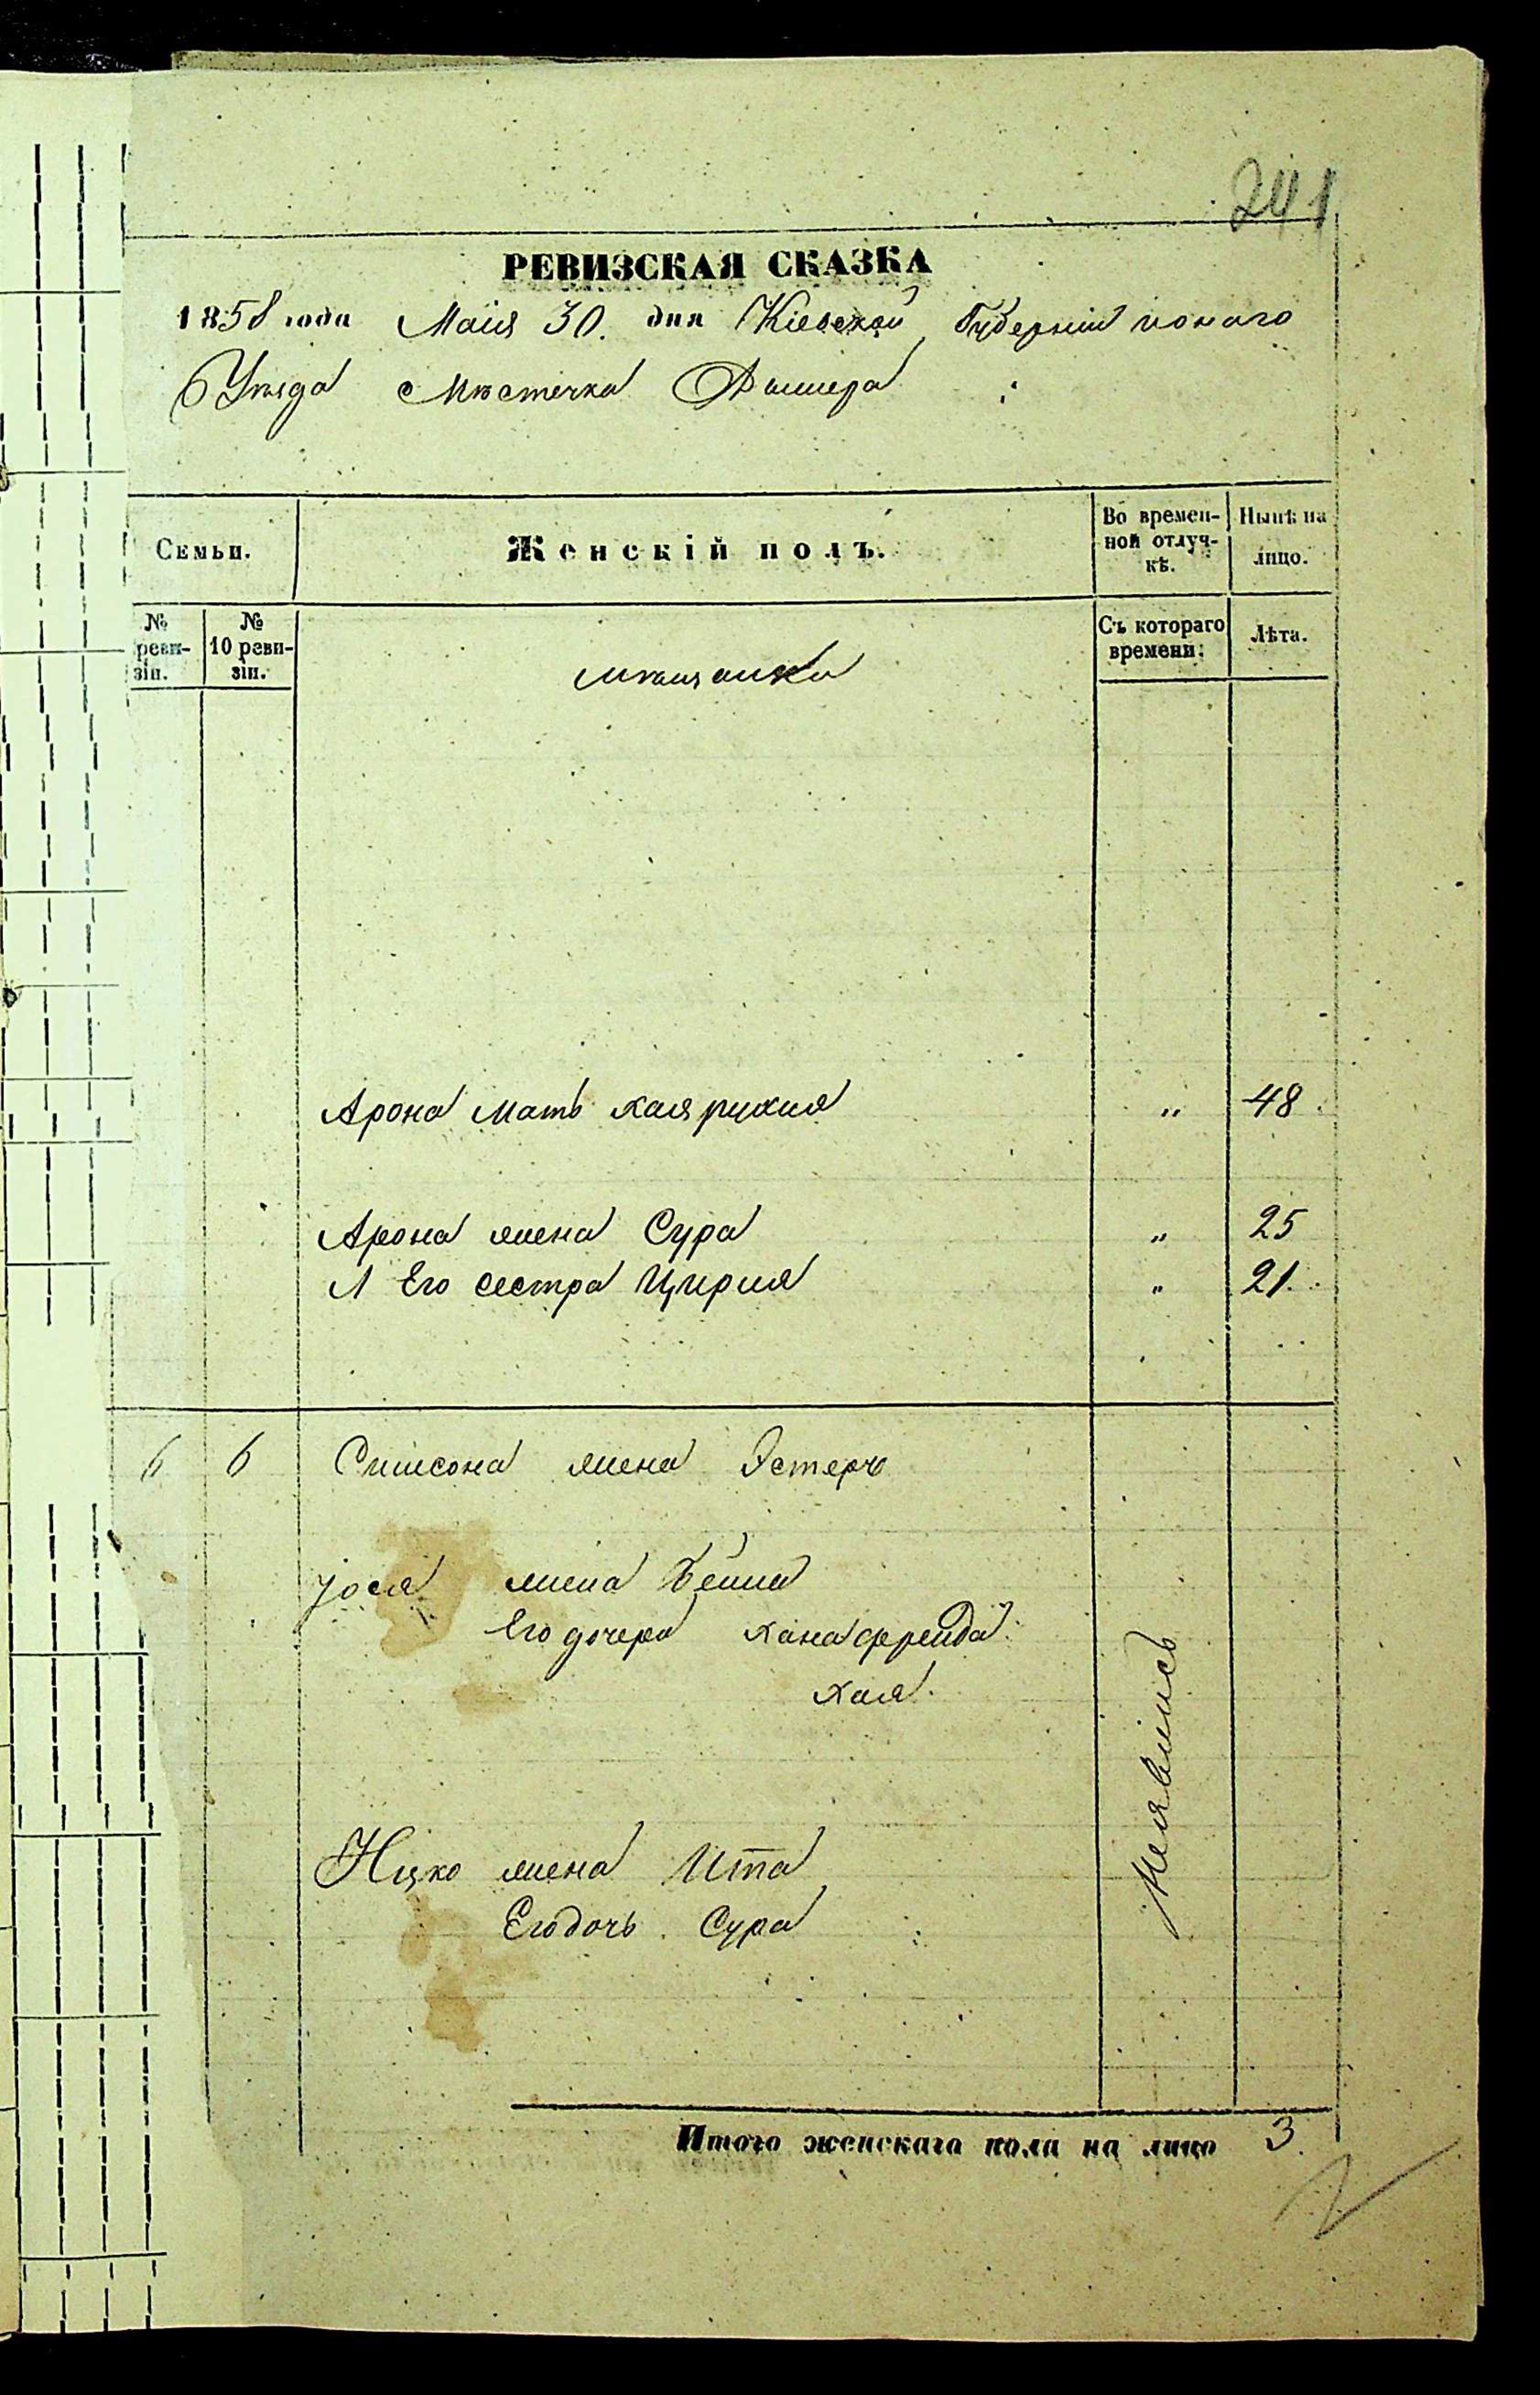 241
РЕВИЗСКАЯ СКАЗКА
1858 года Маія 30. дня Кіевской Губерніи тонаго
Уѣзда Мѣстечка Дымера
Семьи.
Женскій полъ.
Во времен-
ной отлуч-
кѣ.
Нынѣ на
лицо.
№
реви-
зіи.
№
10 реви-
зіи.
мѣщанки
Съ котораго
времени.
Лѣта.
Арона мать хая рухля " 48
Арона жена Сура " 25
Его сестра Цирля " 21.
6 6 Симсона жена Эстеръ
Іося жена Бейла
Его дочери хана фрейда
хая.
Ицко жена Ита
Его дочь Сура
Неявились
Итого женскаго пола на лицо 3